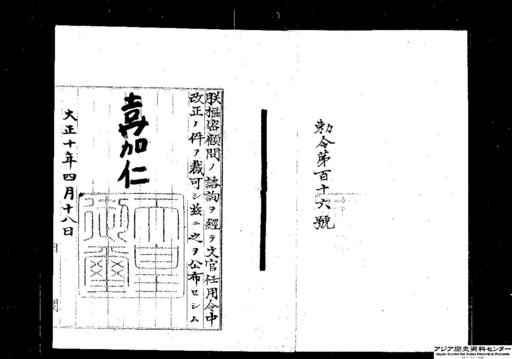 勅令第百十六號
朕樞密顧問ノ諮詢ヲ經テ文官任用令中
改正ノ件ヲ裁可シ茲ニ之ヲ公布セシム
嘉仁
天皇
御璽
大正十年四月十八日
アジア歴史資料センター
Japan Center for Asian Historical Records